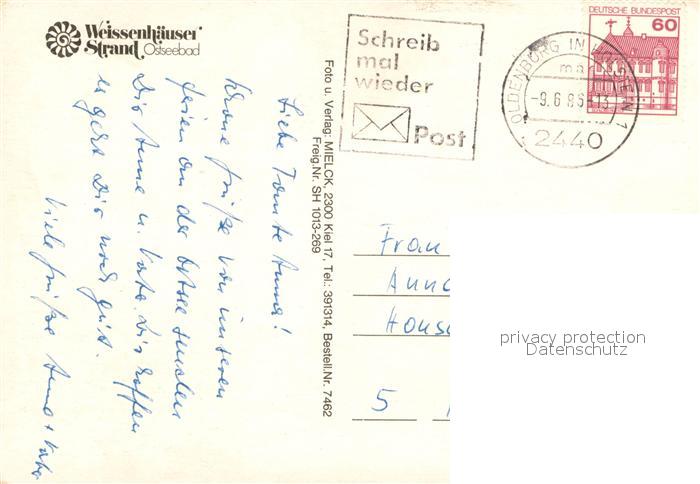 Weissenhäuser
Strand Ostseebad
Liebe Tante Anna!
Schöne Grüße von unseren
Ferien an der Ostsee senden
Dir Anne u. Kata. Wir hoffen
es geht Dir noch gut.
Viele Grüße Anne +
Foto u. Verlag: MIELCK, 2300 Kiel 17, Tel.: 391314, Bestell.Nr. 7462
Freig.Nr. SH 1013-269
Schreib
mal
wieder
Post
OLDENBURG IN HOLSTEIN 1
-9.6.86-13
2440
DEUTSCHE BUNDESPOST
60
Frau
Anna
5
privacy protection
Datenschutz